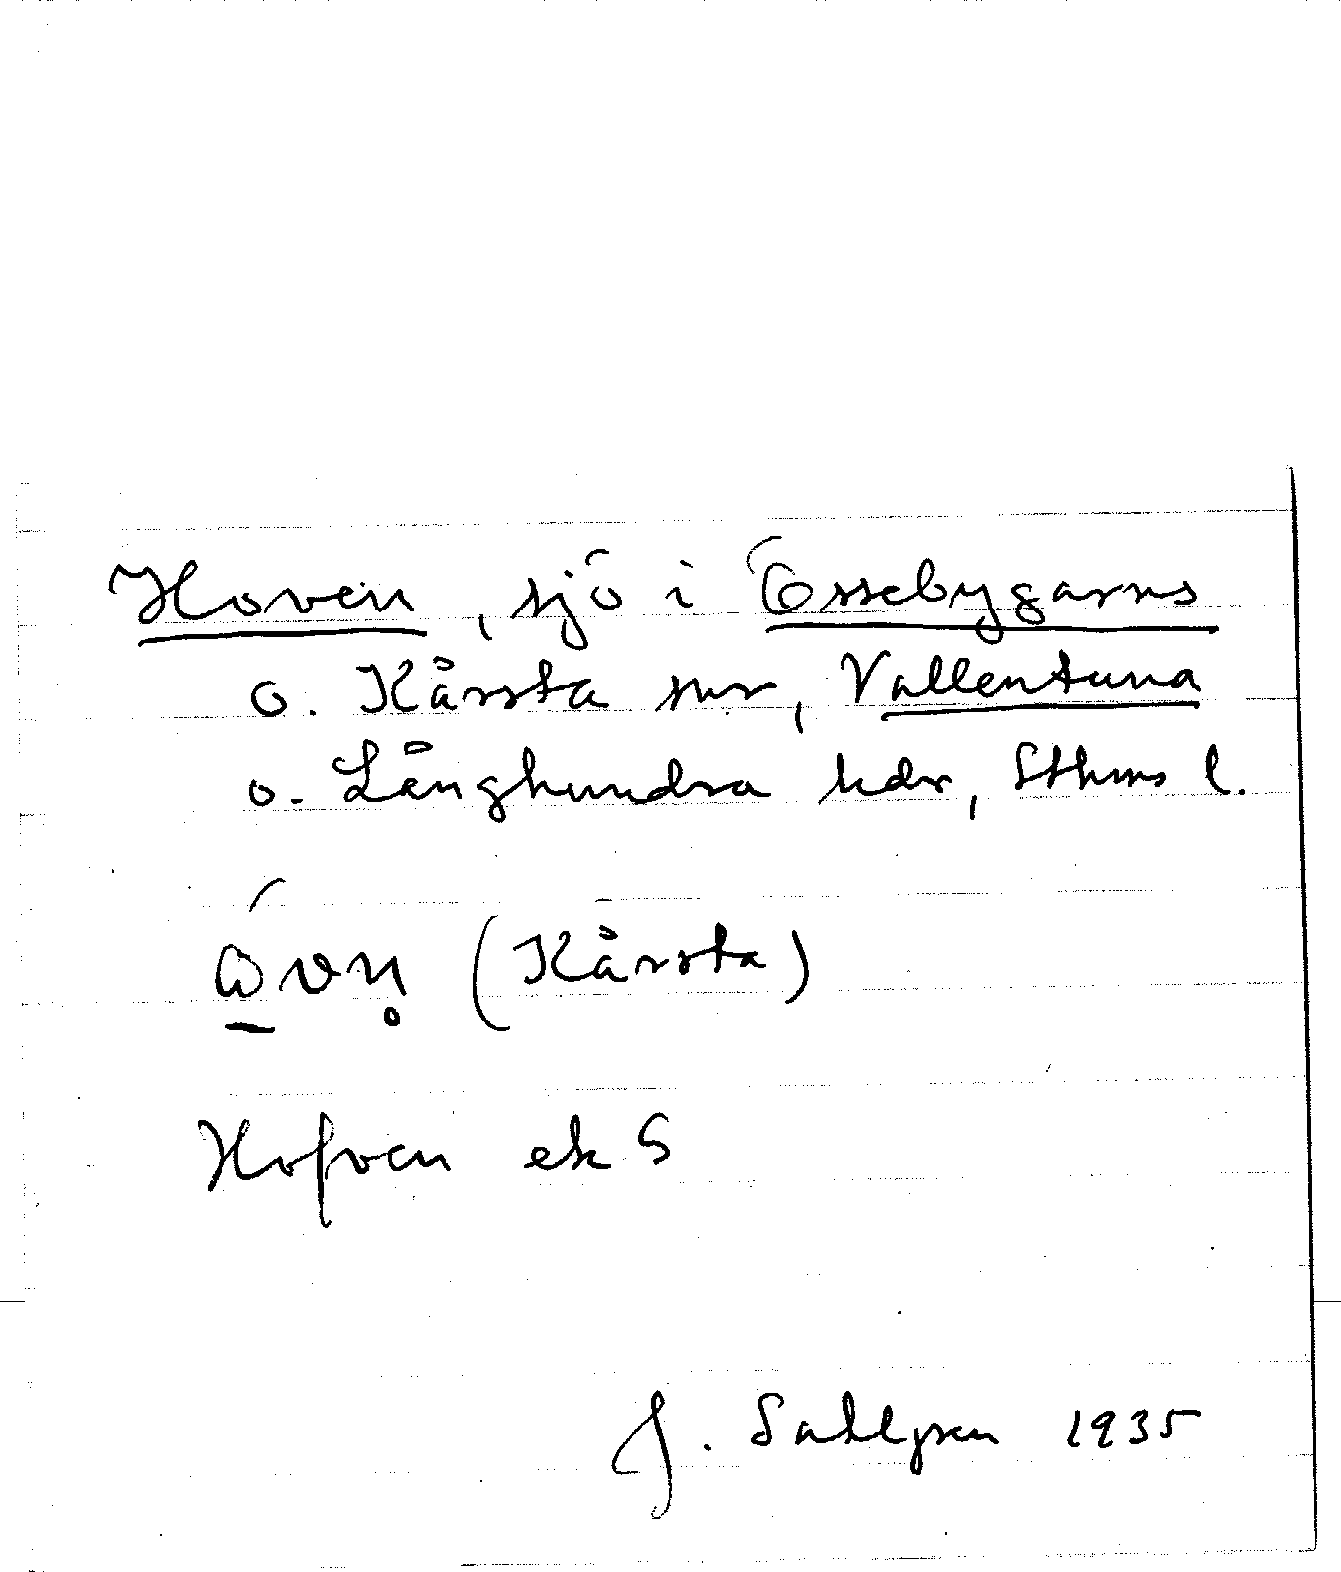 Hoven, sjö i Össebygarns
o. Kårsta snr, Vallentuna
o. Långhundra hdr, Sthms l.
(Kårsta)
Hofven ek S
J. Sahlgren 1935